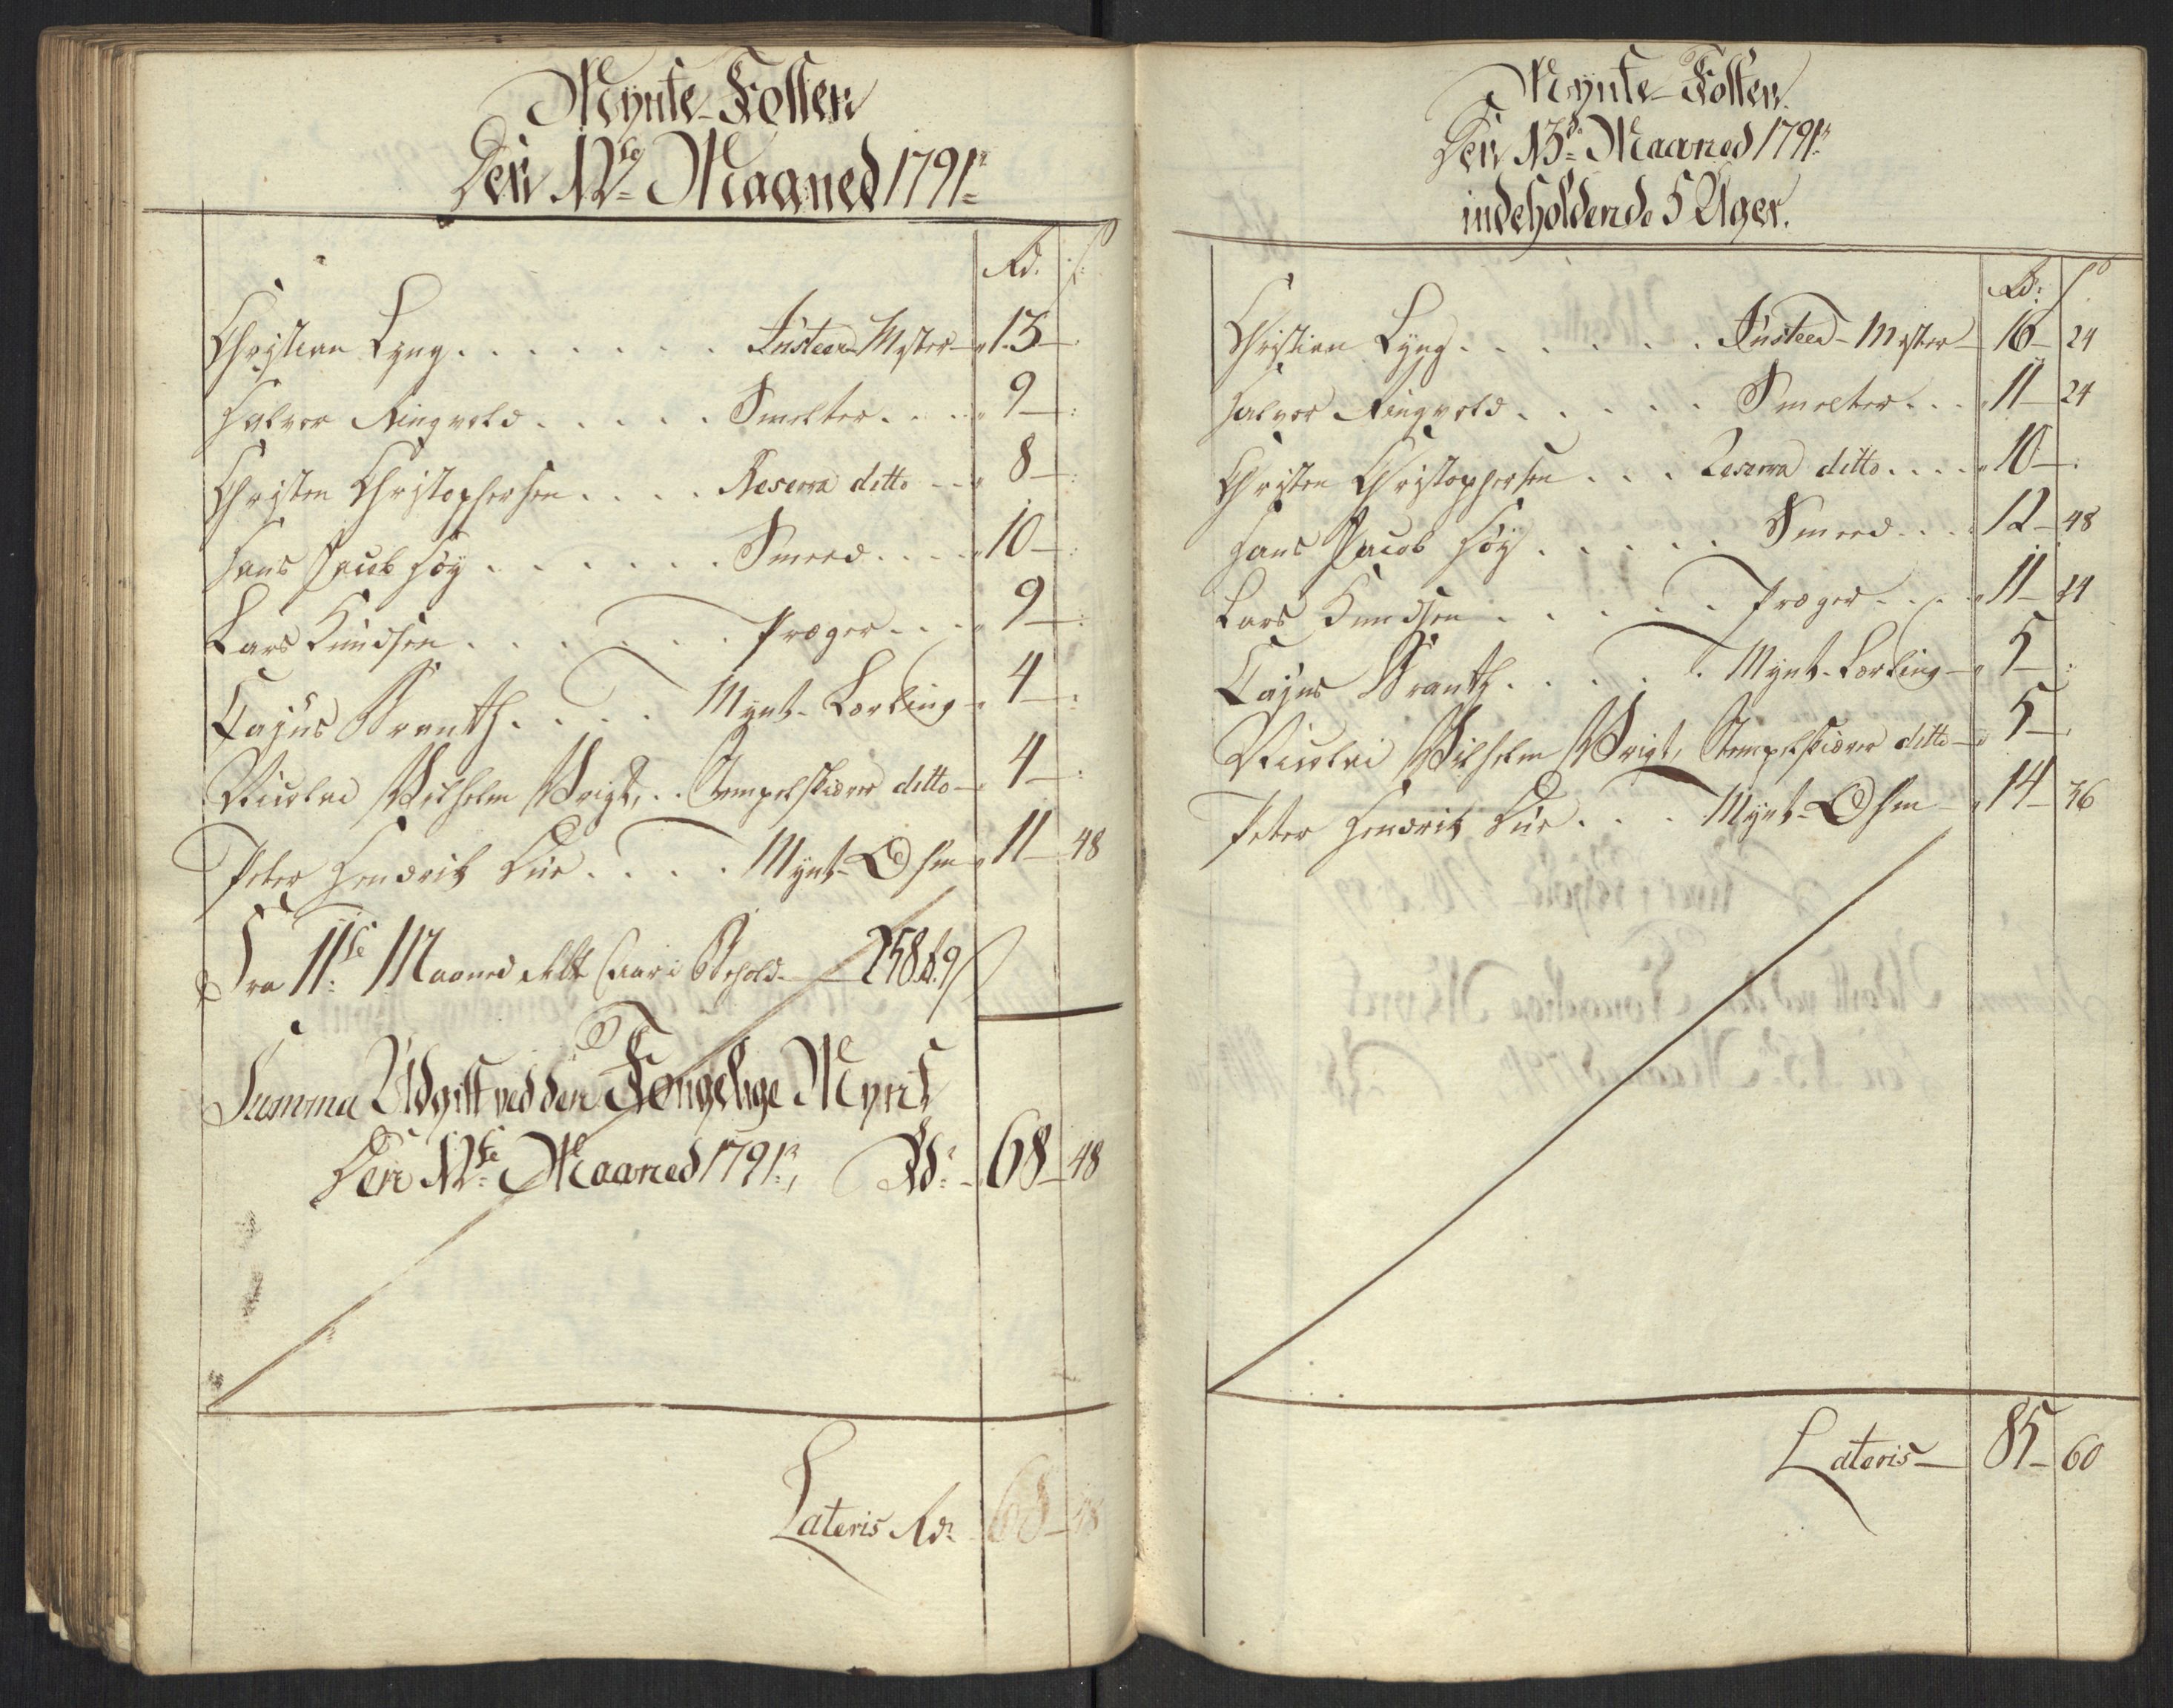 Mynte-Folken
Den 12te Maaned 1791
Rd. ß
Christian Lyng . . . . . . . Justeer-Mester 13 —
Halvor Ringvold . . . . . Smelter . . . 9 —
Christen Christophersen . . . . Reserva ditto 8 —
Hans Jacob Høy . . . . . . Smeed . . . 10 —
Lars Knudsen . . . . . . Præger . . . 9 —
Cajus Branth . . . . Mynt-Lærling 4 —
Nicolai Wilhelm Wrigt, . . Stempelskiærer ditto 4 —
Peter Hendrik . . . . Mynt- 11 — 48
Fra 11te Maaned i Behold
Summa Udgift ved den Kongelige Mynt
Den 12te Maaned 1791, Rdr 68 — 48
Lateris Rdr 68 — 48
Mynte-Folken
Den 13de Maaned 1791
indeholdende 5 Uger.
Rd: ß
Christian Lyng . . . . . . Justeer-Mester 16 — 24
Halvor Ringvold . . . . . Smelter . . . 11 — 24
Christen Christophersen . . . Reserva ditto . . . . 10 —
Hans Jacob Høy . . . . . Smeed . . . 12 — 48
Lars Knudsen . . . . . Præger . . . 11 — 24
Cajus Branth . . . . . Mynt-Lærling 5 —
Nicolai Wilhelm Wrigt, Stempelskiærer ditto 5 —
Peter Hendrik . . . Mynt- 14 — 36
Lateris — 85 — 60